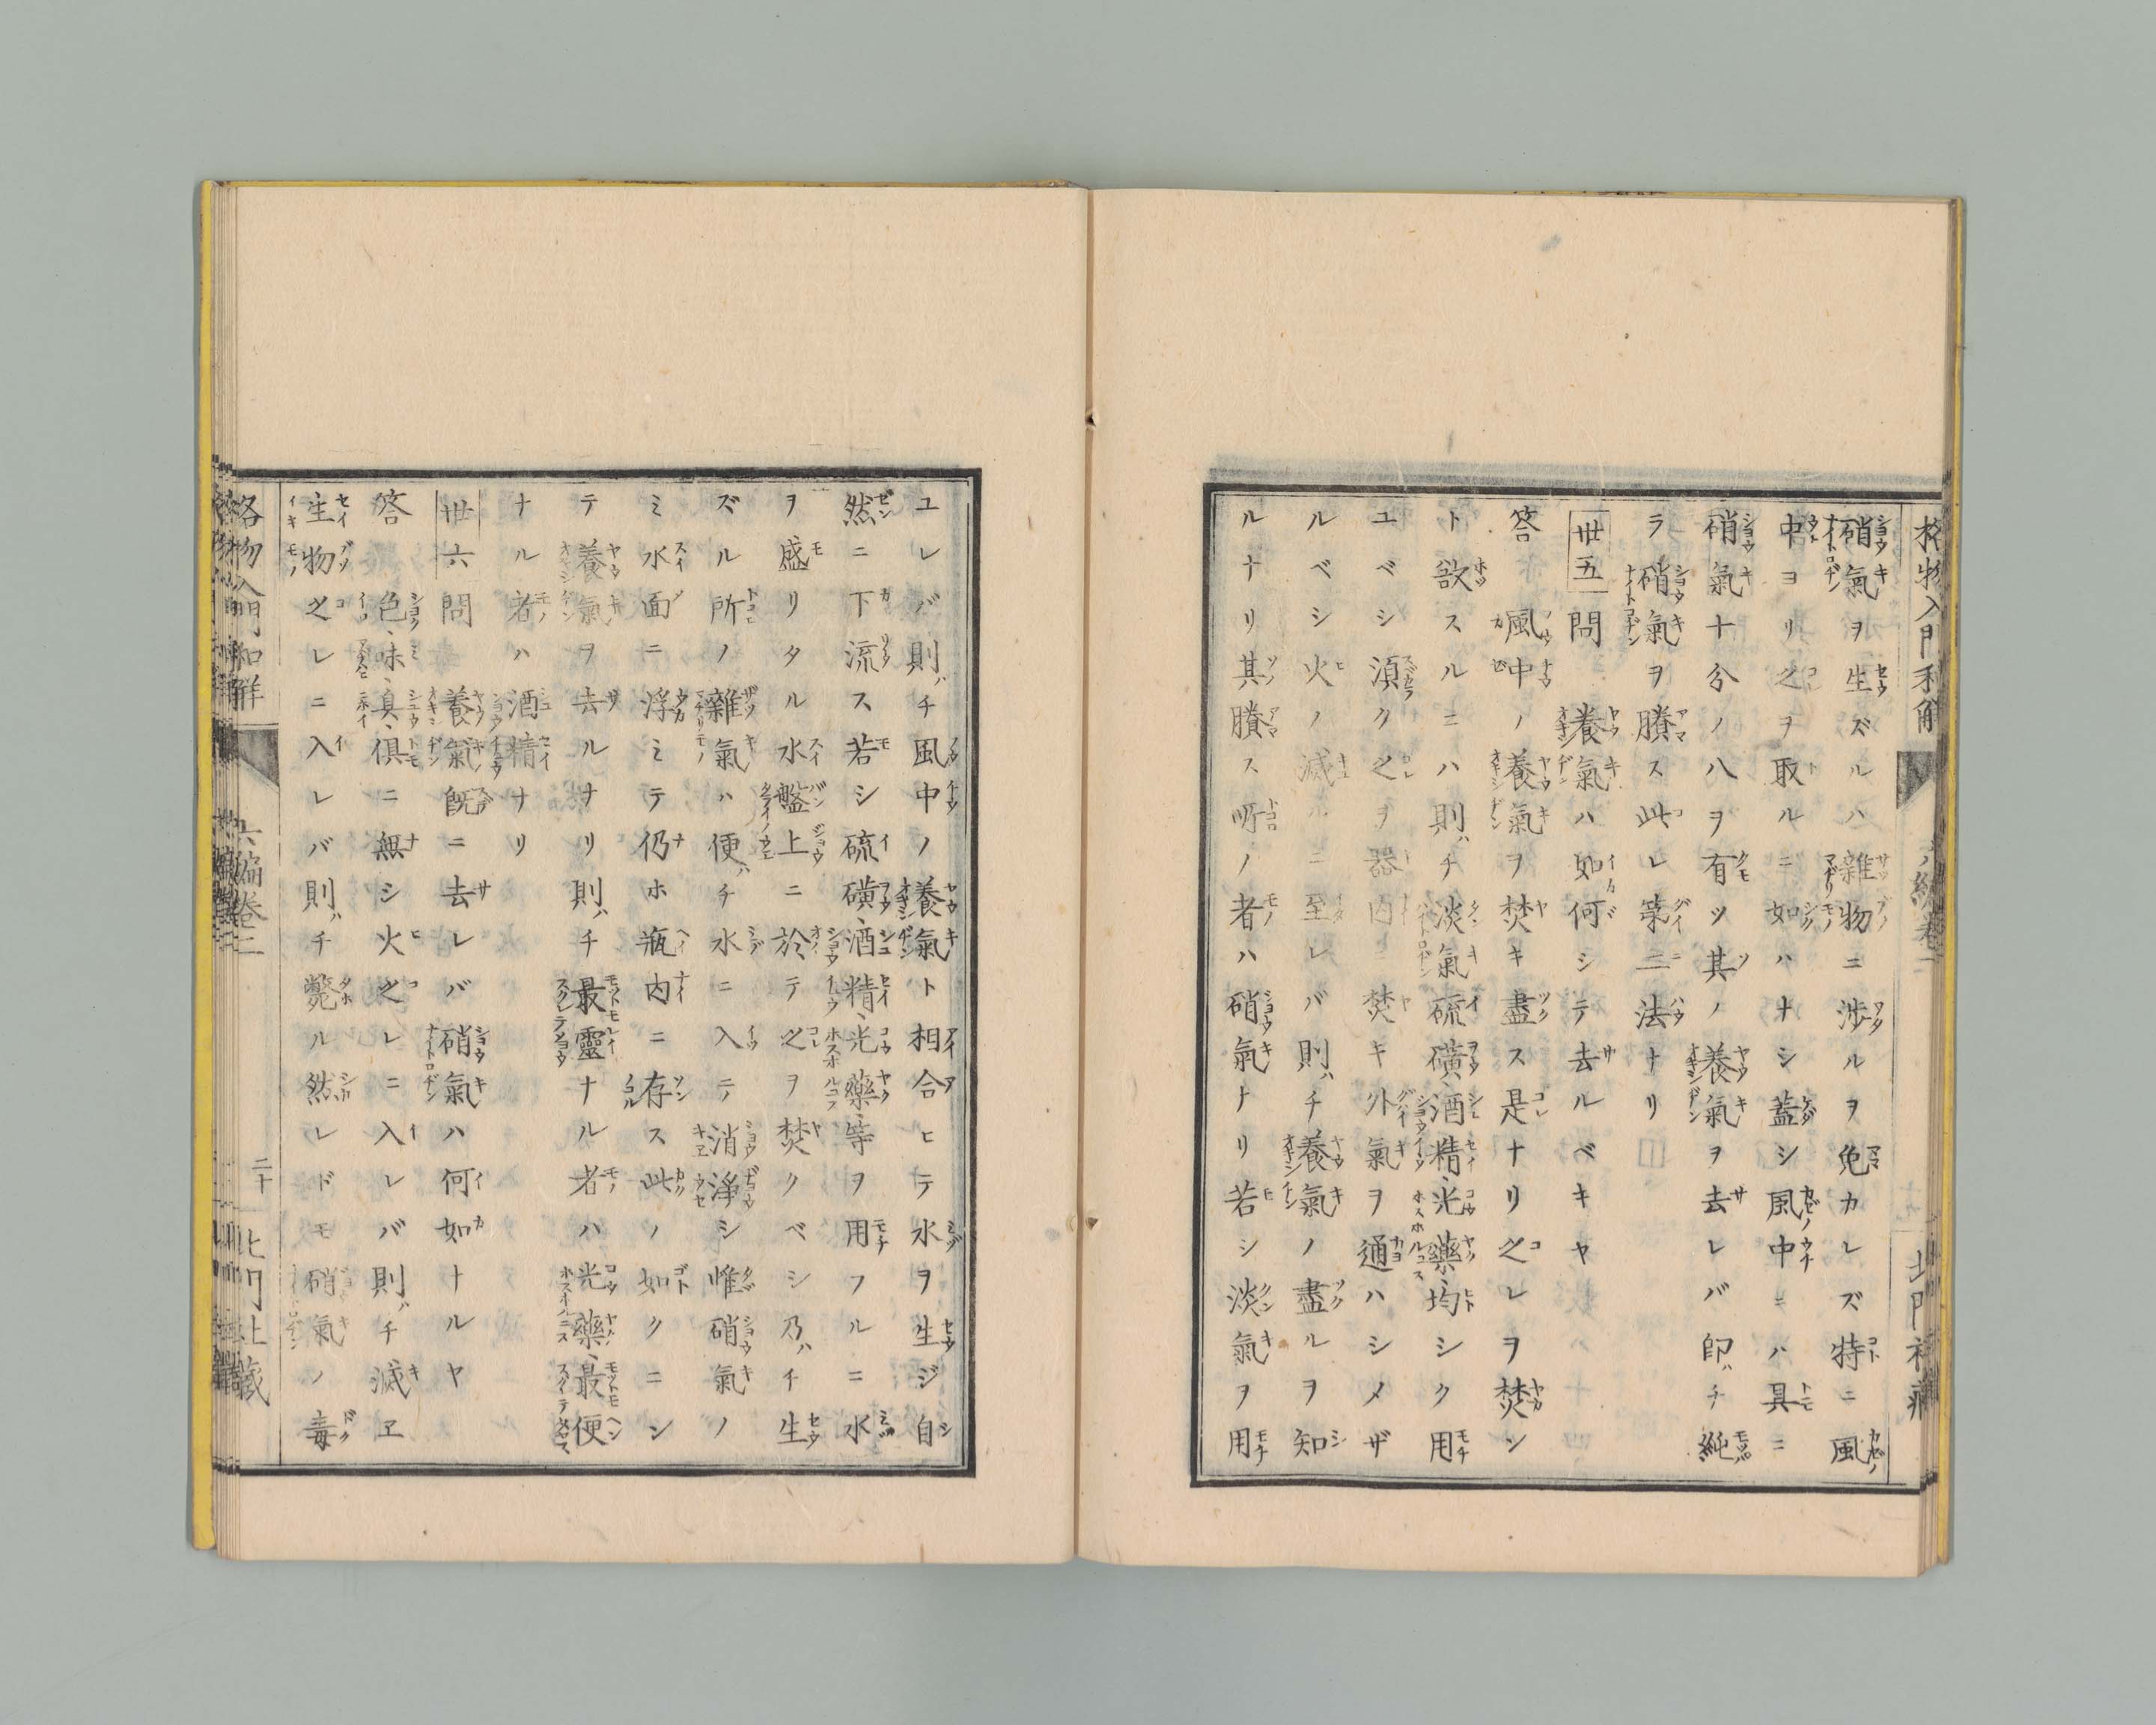 格物入門和解
六編卷二
北門社藏
硝氣ヲ生ズルハ雜物ニ渉ルヲ免カレズ特ニ風
中ヨリ之ヲ取ルニ如ハナシ蓋シ風中ニハ具ニ
硝氣十分ノ八ヲ有ツ其ノ養氣ヲ去レバ即チ純
ラ硝氣ヲ賸ス此レ第二法ナリ
卅五問 養氣ハ如何シテ去ルベキヤ
答 風中ノ養氣ヲ焚キ盡ス是ナリ之レヲ焚ン
ト欲スルニハ則チ淡氣硫磺、酒精、光藥、均シク用
ユベシ湏ク之ヲ器内ニ焚キ外氣ヲ通ハシメザ
ルベシ火ノ滅ルニ至レバ則チ養氣ノ盡ルヲ知
ルナリ其賸ス所ノ者ハ硝氣ナリ若シ淡氣ヲ用
ユレバ則チ風中ノ養氣ト相合ヒテ水ヲ生ジ自
然ニ下流ス若シ硫磺、酒精、光藥、等ヲ用フルニ水
ヲ盛リタル水盤上ニ於テ之ヲ焚クベシ乃チ生
ズル所ノ雜氣ハ便チ水ニ入テ消淨シ惟硝氣ノ
ミ水面ニ浮ミテ仍ホ瓶内ニ存ス此ノ如クニシ
テ養氣ヲ去ルナリ則チ最靈ナル者ハ光藥、最便
ナル者ハ酒精ナリ
卅六問 養氣既ニ去レバ硝氣ハ何如ナルヤ
答 色、味、臭、俱ニ無シ火之レニ入レバ則チ滅ヱ
生物之レニ入レバ則チ斃ル然レドモ硝氣ノ毒
格物入門和解
六編卷二
二十
北門社藏